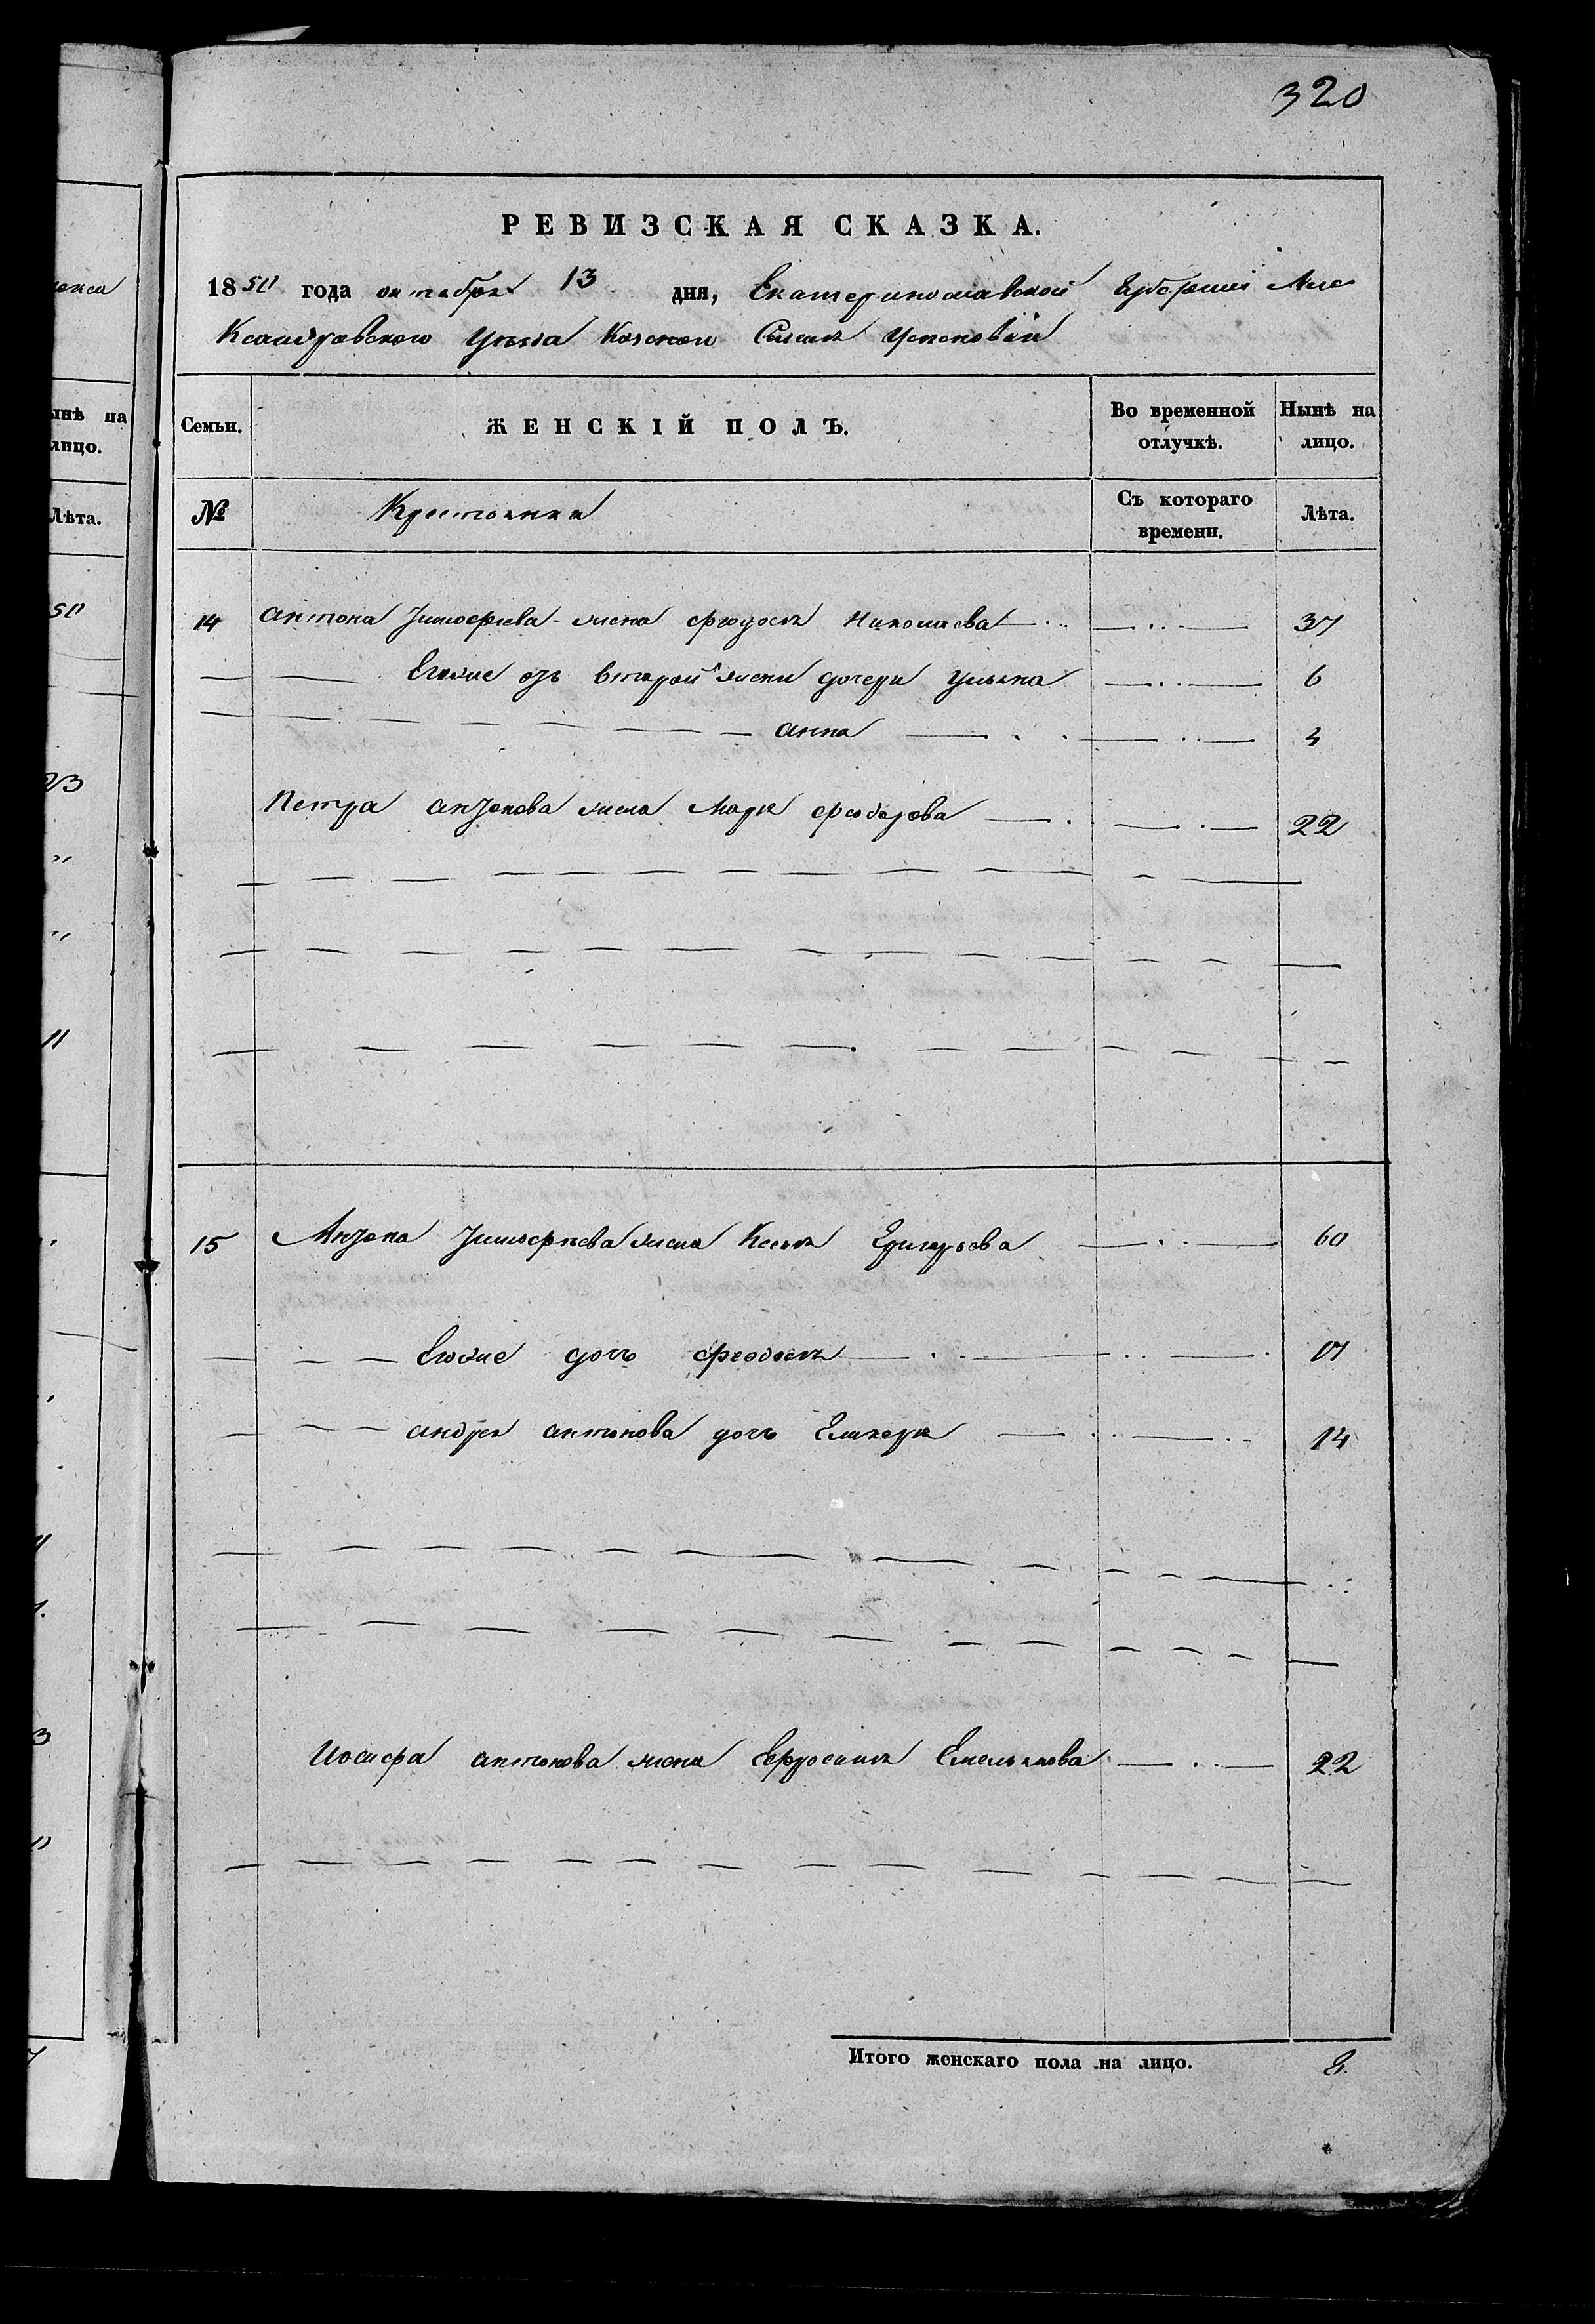 320
РЕВИЗСКАЯ СКАЗКА.
1850 года октября 13 дня, Екатеринославской Губернии Але
Ксандровского Уезда Успеновки
Семьи.
ЖЕНСКІЙ ПОЛЪ.
Во временной отлучкѣ.
Нынѣ на лицо.
№
Крестьянки
Съ котораго времени.
Лѣта.
14 Антона Тимофеева жена Феодосия Николаева 37
Егоже отъ второй жены дочери Ульяна 6
анна 4
Петра антонова жена Мария Феодорова 22
15 Антона Тимофеева жена Ксения Григорьева 60
Егоже дочь Феодосия 17
андрея антонова дочь Гликерия 14
Иосифа антонова жена Ефросиния Емельянова 22
Итого женскаго пола на лицо. 8.
ынѣ на
лицо.
Лѣта.
50
23
"
"
11